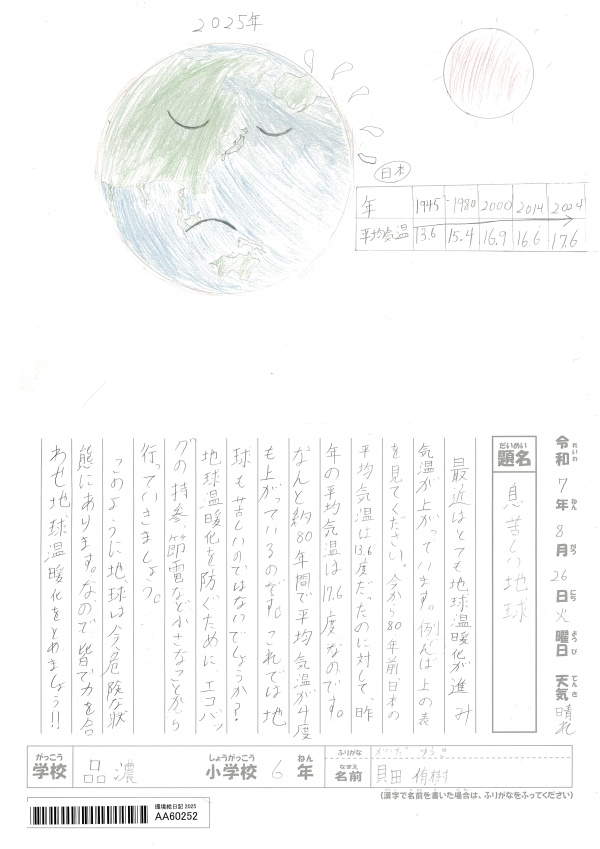 2025年
日本
年 1945 1980 2000 2014 2024
平均気温 13.6 15.4 16.9 16.6 17.6
令和7年8月26日火曜日 天気晴れ
れいわ ねん がつ にち ようび てんき
だいめい
題名
息苦しい地球
最近はとても地球温暖化が進み
気温が上がっています。例えば上の表
を見てください。今から80年前、日本の
平均気温は13.6度だったのに対して、昨
年の平均気温は17.6度なのです。
なんと約80年間で平均気温が4度
も上がっているのです。これでは地
球も苦しいのではないでしょうか?
地球温暖化を防ぐために、エコバッ
グの持参、節電など小さなことから
行っていきましょう。
このように地球は今、危険な状
態にあります。なので皆で力を合
わせ地球温暖化をとめましょう!!
がっこう
学校
品濃
しょうがっこう
小学校
6
ねん
年
ふりがな
なまえ
名前
貝田 侑樹
(漢字で名前を書いた場合は、ふりがなをふってください)
環境絵日記 2025
AA60252